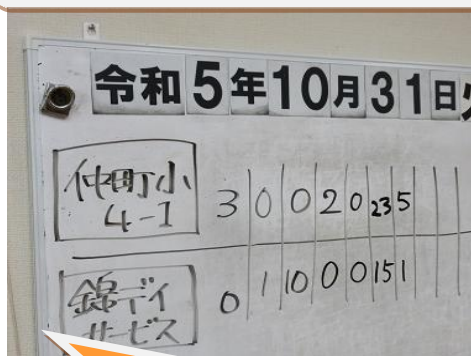 令和5年10月31日
仲町小
4-1
3 0 0 2 0 23 5
錦デイ
サービス
0 1 10 0 0 15 1